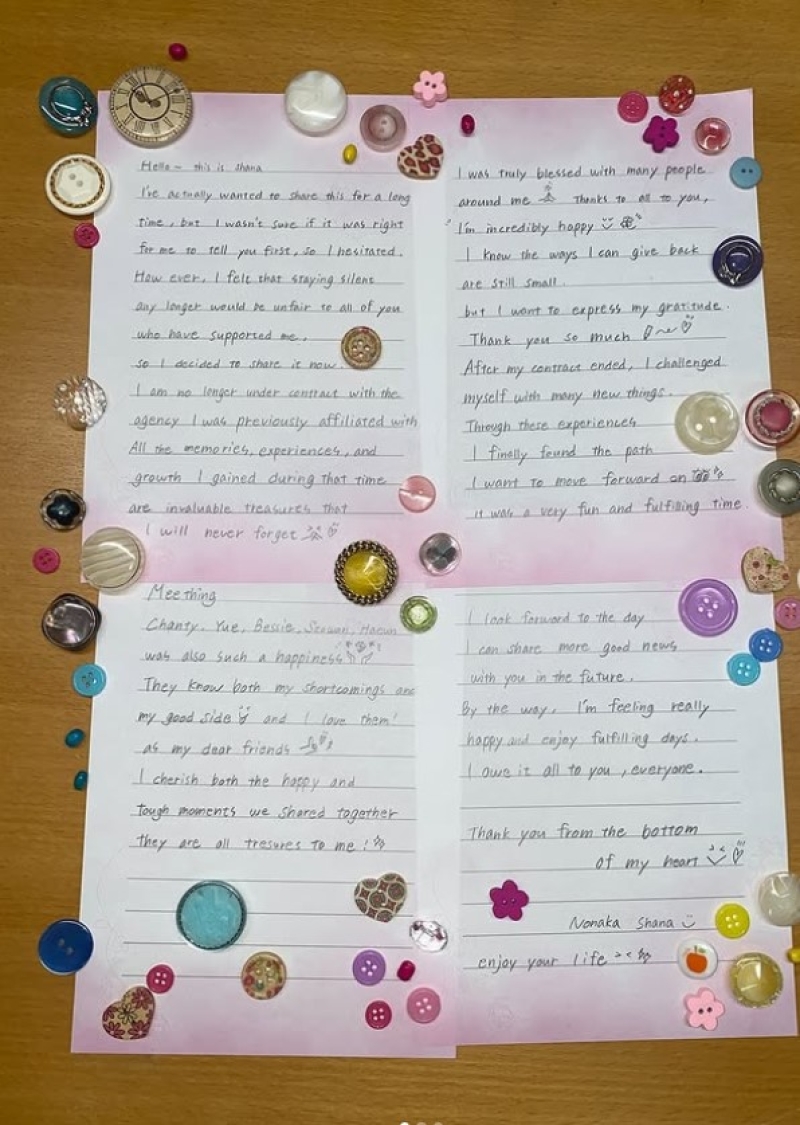 Hello~ this is shana
I've actually wanted to share this for a long
time, but I wasn't sure if it was right
for me to tell you first, so I hesitated.
How ever, I felt that staying silent
any longer would be unfair to all of you
who have supported me.
so I decided to share it now.
I am no longer under contract with the
agency I was previously affiliated with
All the memories, experiences, and
growth I gained during that time
are invaluable treasures that
I will never forget
Meething
Chanty, Yue, Bessie, Seowon, Haeun
was also such a happiness
They know both my shortcomings and
my good side and I love them!
as my dear friends
I cherish both the happy and
tough moments we shared together
they are all tresures to me!
I was truly blessed with many people
around me Thanks to all to you,
I'm incredibly happy
I know the ways I can give back
are still small.
but I want to express my gratitude.
Thank you so much
After my contract ended, I challenged
myself with many new things.
Through these experiences
I finally found the path
I want to move forward on
it was a very fun and fulfilling time.
I look forward to the day
I can share more good news
with you in the future.
By the way, I'm feeling really
happy and enjoy fulfilling days.
I owe it all to you, everyone.
Thank you from the bottom
of my heart
Nonaka Shana
enjoy your life